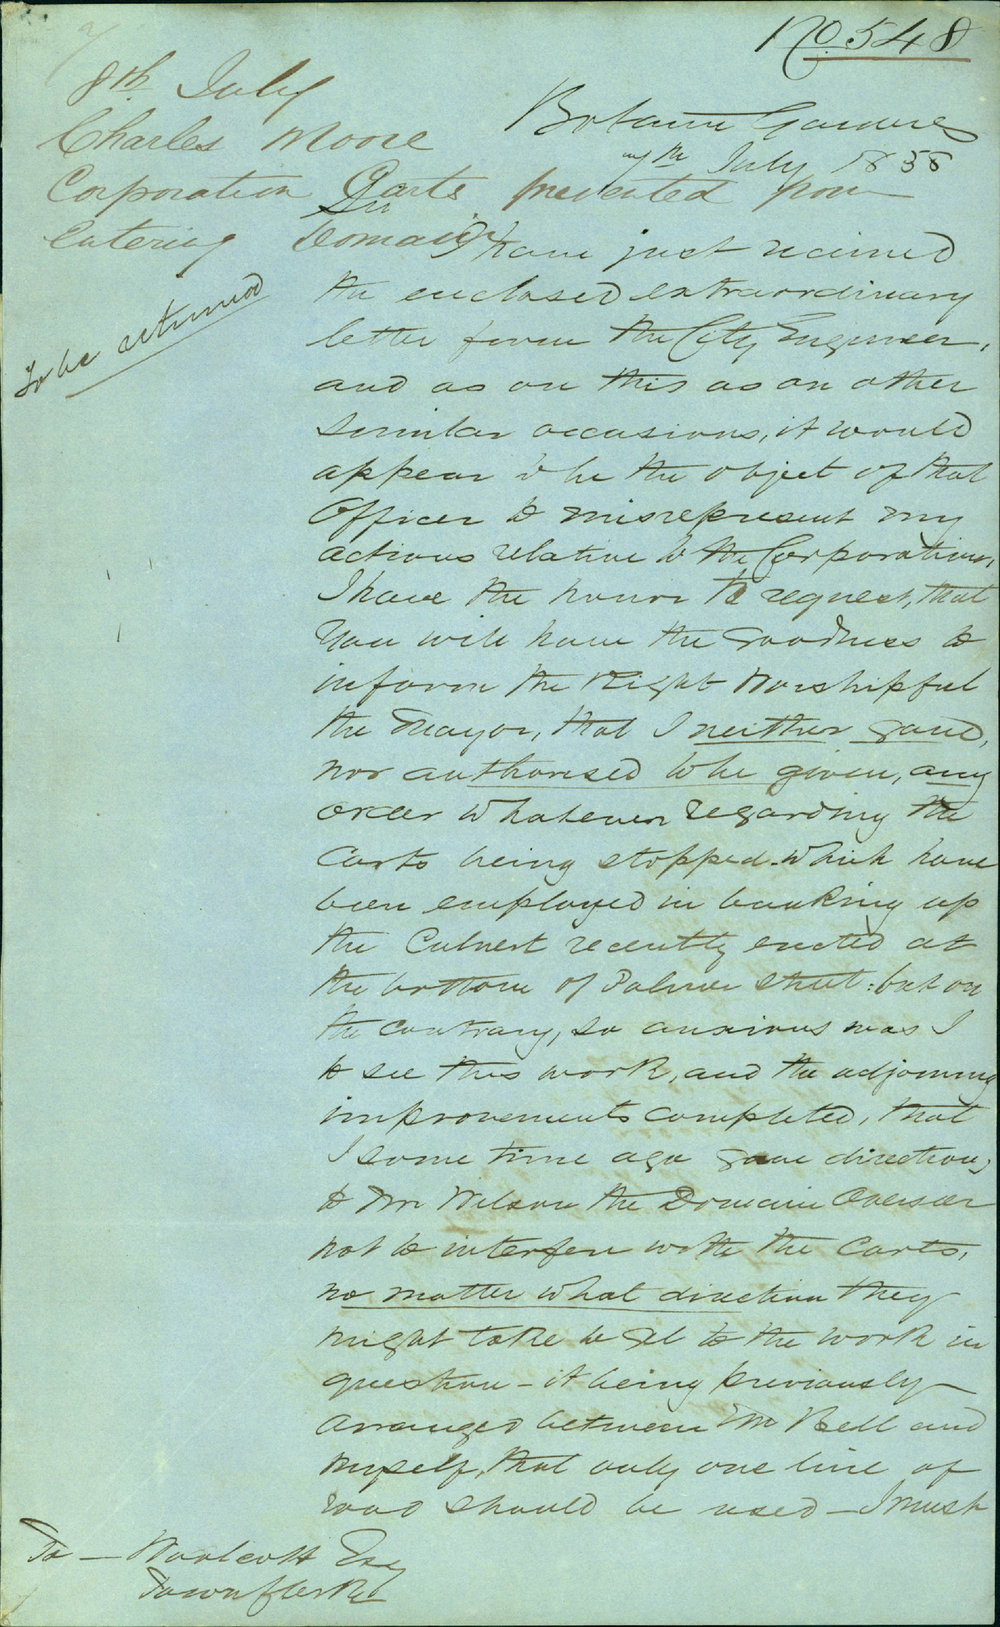 No. 548
8th July
Charles Moore
Corporation Carts prevented from
entering Domain
To be returned
Botanic Gardens
7th July 1858
Sir
I have just received
the enclosed extraordinary
letter from the City Engineer,
and as on this as on other
similar occasions, it would
appear to be the object of that
Officer to misrepresent my
actions relative to the Corporation,
I have the honor to request, that
You will have the goodness to
inform the Right Worshipful
the Mayor, that I neither gave,
nor authorised to be given, any
order whatever regarding the
Carts being stopped which have
been employed in banking up
the Culvert recently erected at
the bottom of Palmer Street: but on
the contrary, so anxious was I
to see this work, and the adjoining
improvements completed, that
I some time ago gave directions
to Mr Wilson the Domain Overseer
not to interfere with the Carts,
no matter what direction they
might take to get to the work in
question - it being previously
arranged between Mr Bell and
myself, that only one line of
road should be used - I must
To - Woolcott Esq
Town Clerk